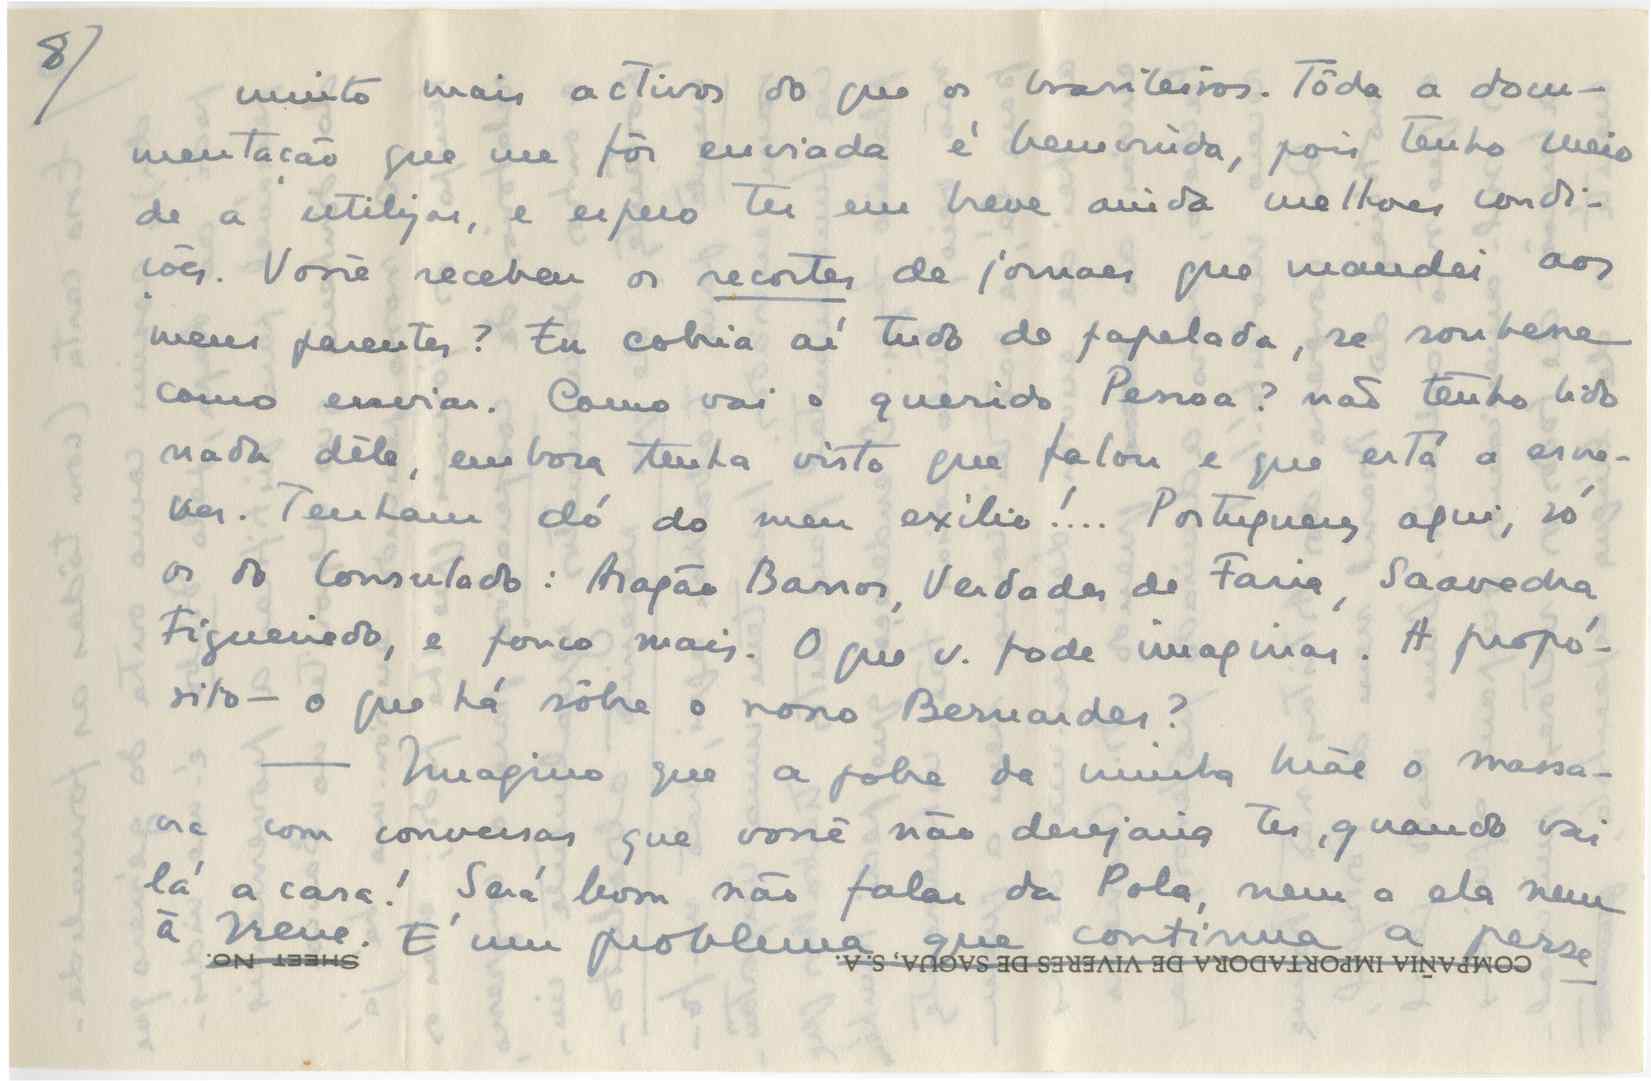 8/
muito mais activos do que os brasileiros. Tôda a docu-
mentação que me fôr enviada é bemvinda, pois tenho meio
de a utilizar, e espero ter em breve ainda melhores condi-
ções. Vossê recebeu os recortes de jornaes que mandei aos
meus parentes? Eu cobria aí tudo de papelada, se soubesse
como enviar. Como vai o querido Pessoa? não tenho lido
nada dêle, embora tenha visto que falou e que está a escre-
ver. Tenham dó do meu exílio!... Portugueses aqui, só
os do Consulado: Aragão Barros, Verdades de Faria, Saavedra
Figueiredo, e pouco mais. O que v. pode imaginar. A propó-
sito — o que há sôbre o nosso Bernardes?
— Imagino que a pobre da minha Mãe o massa-
cre com conversas que vossê não desejaria ter, quando vai
lá a casa! Será bom não falar da Pola, nem a ela nem
à Irene. É um problema que continua a perse-
COMPAÑIA IMPORTADORA DE VIVERES DE SAGUA, S. A.
SHEET NO.